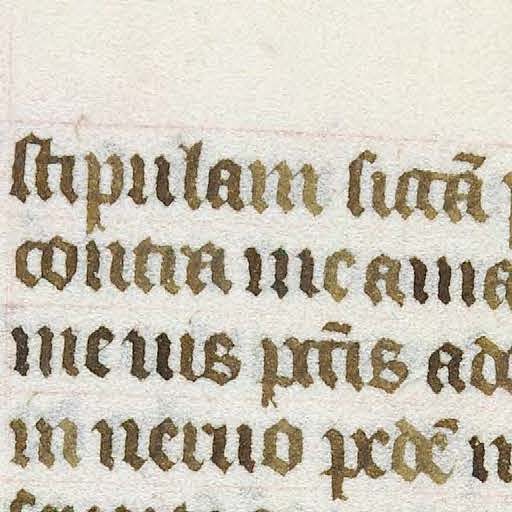 stipulam siccā
contra me ama
me uis pccīs ado
in neruo pedē m